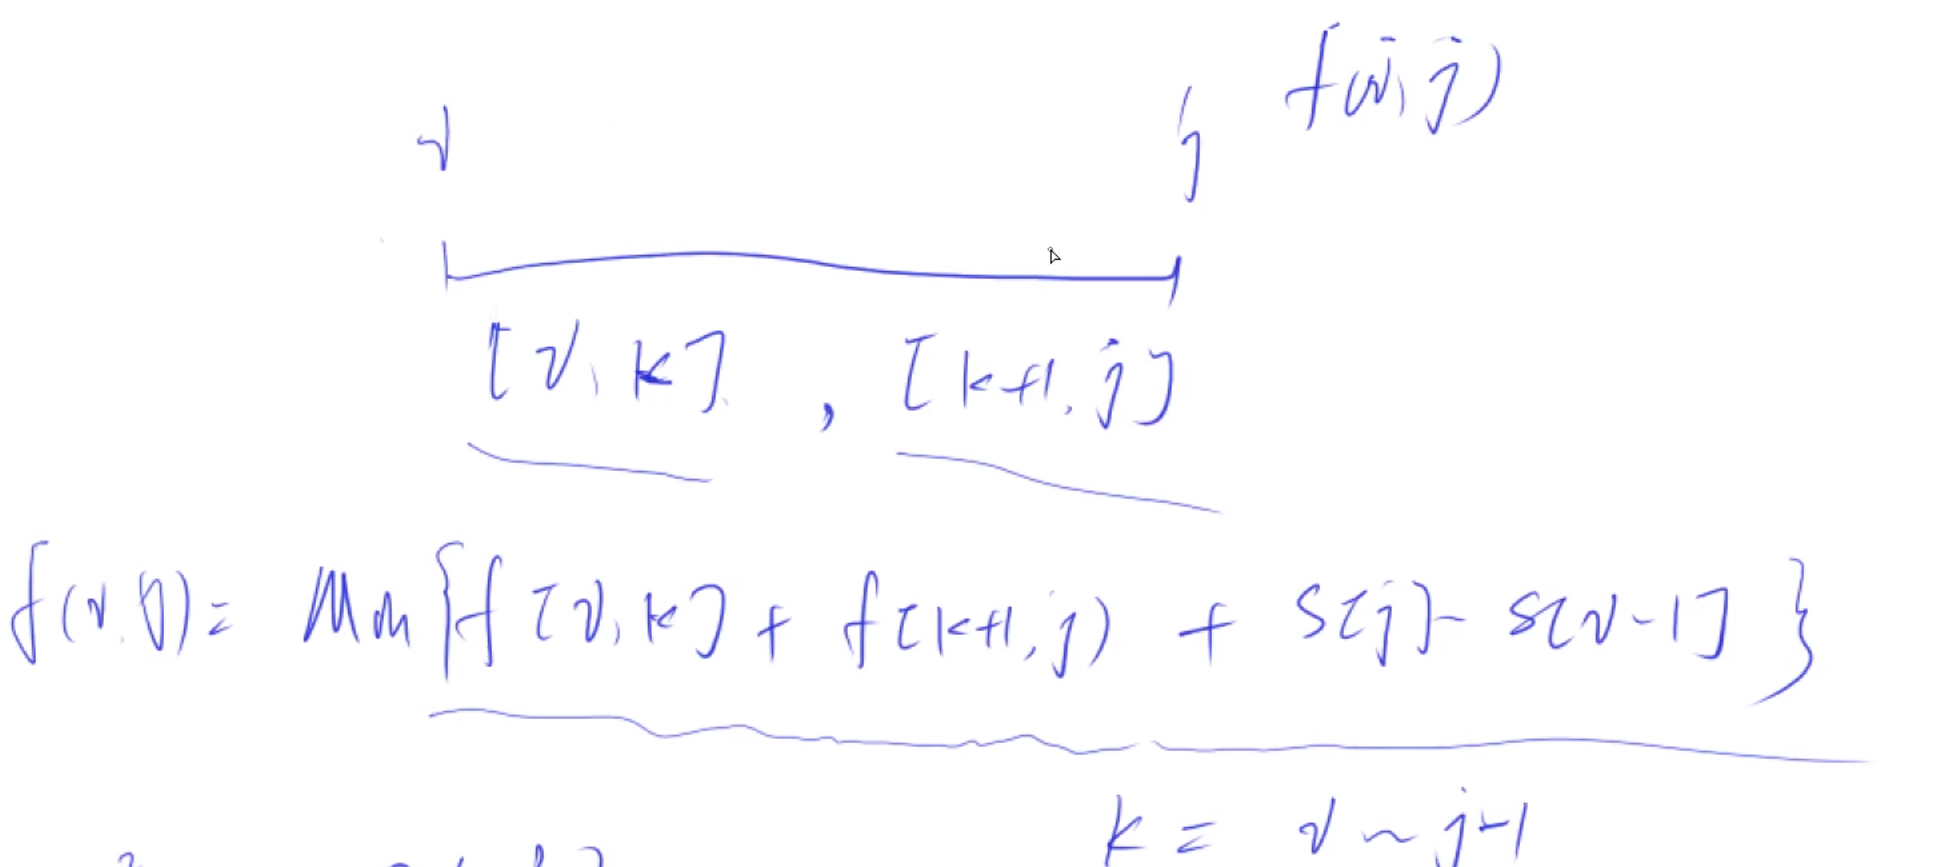 f(i, j)
i j
[i, k] , [k+1, j]
f(i, j) = Min { f[i, k] + f[k+1, j) + S[j] - S[i-1] }
k = i ~ j-1